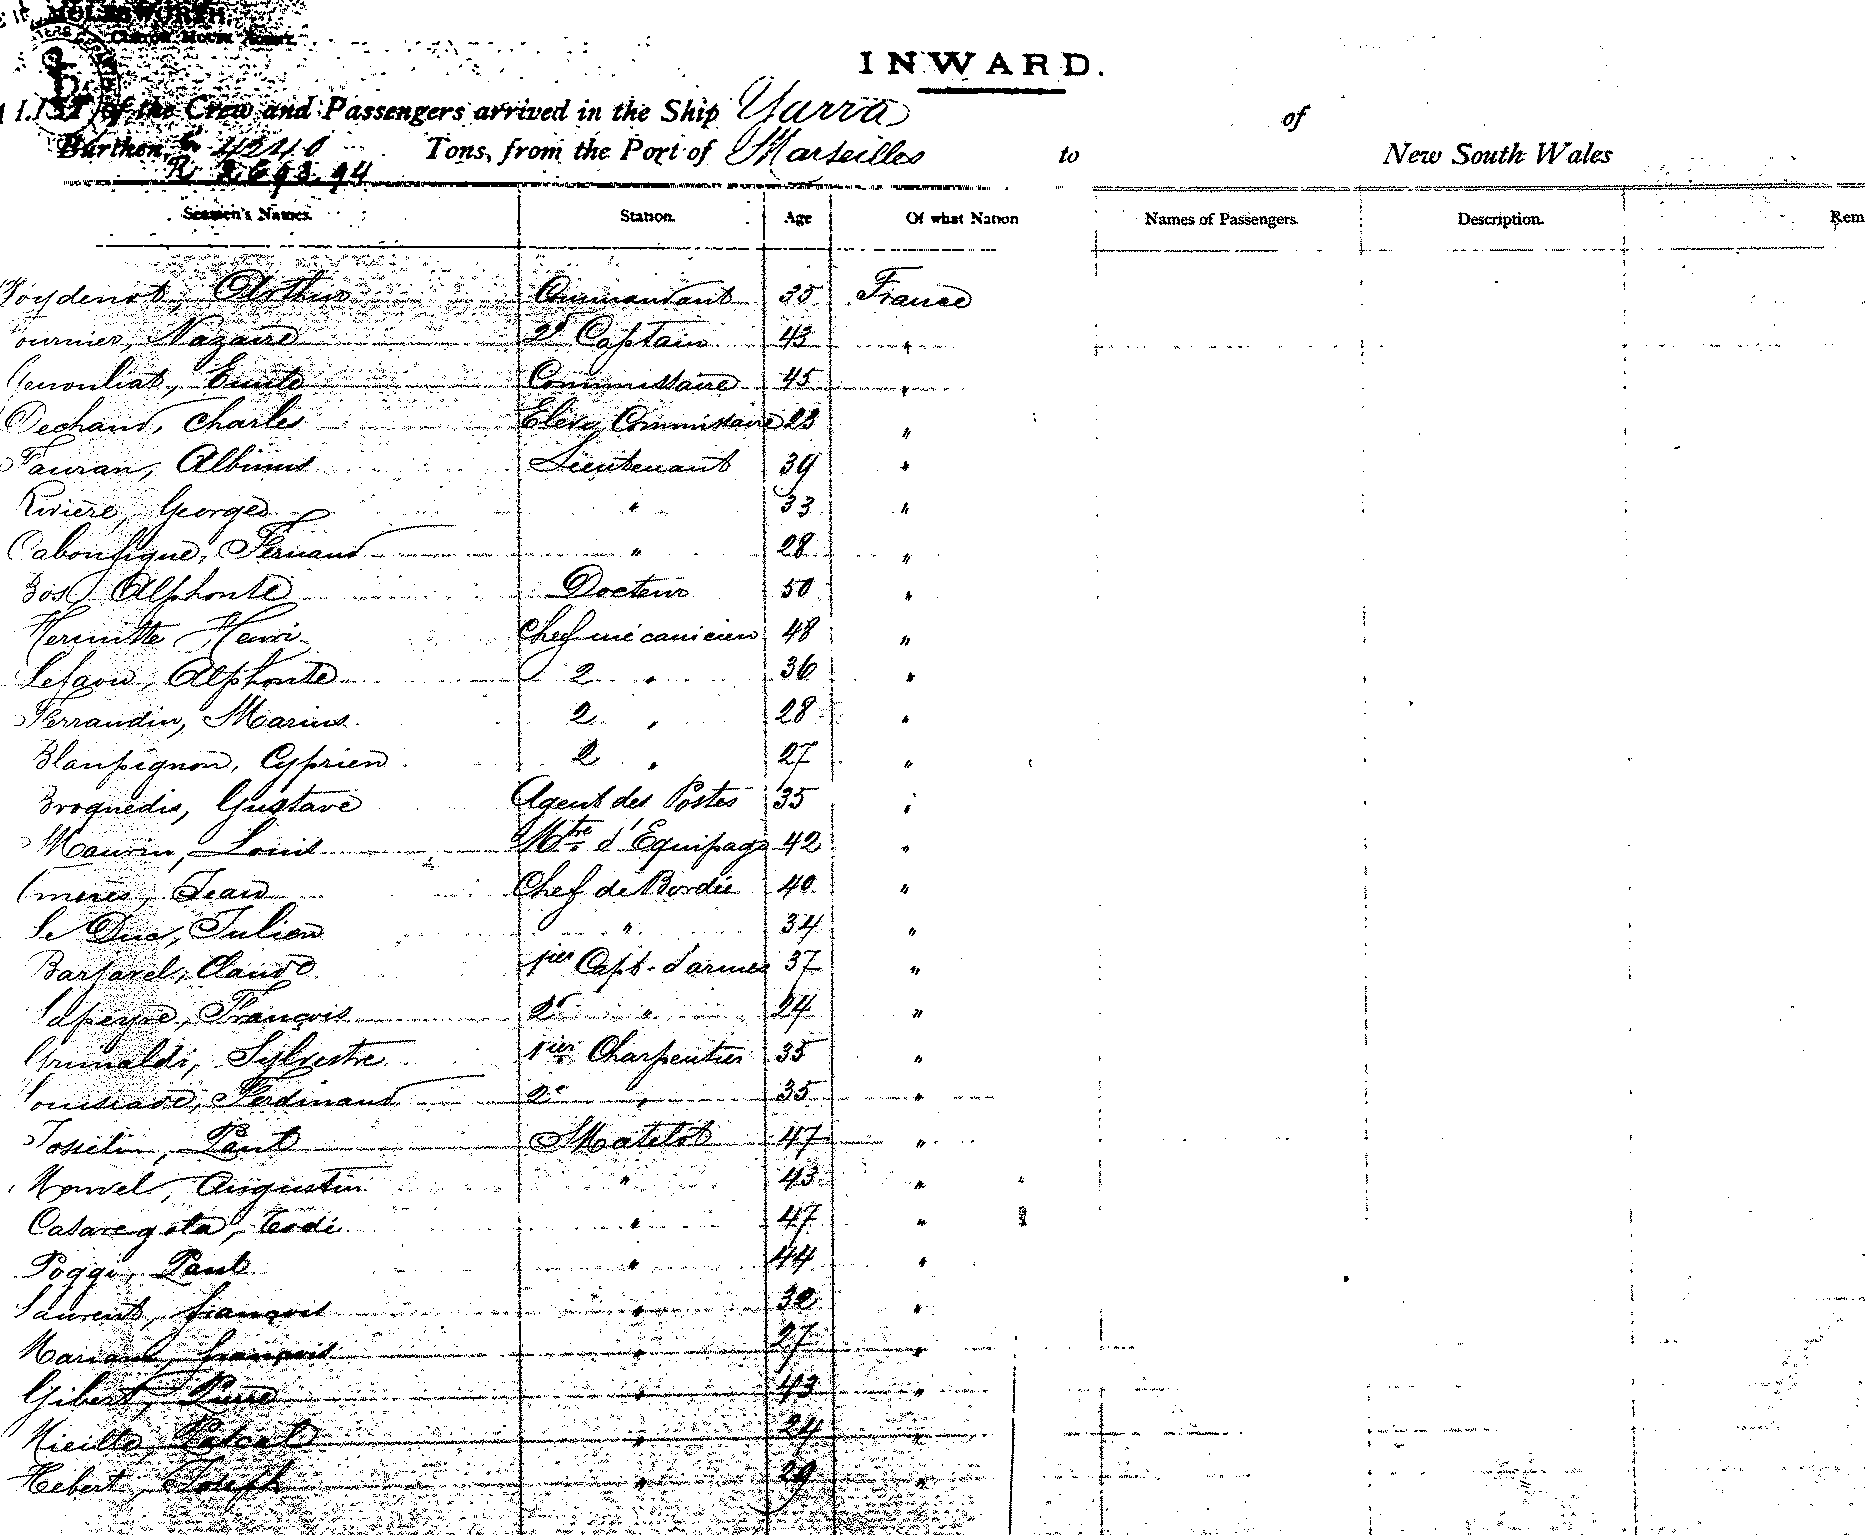 MOLESWORTH,
INWARD.
A LIST of the Crew and Passengers arrived in the Ship Yarra of
Burthen, G 4240 Tons, from the Port of Marseilles to New South Wales
R 2693.94
Seamen's Names. Station. Age Of what Nation Names of Passengers. Description. Rem
Poydenot, Arthur Commandant 35 France
ournier, Nazaire 2d Captain 43 "
Emile Commissaire 45 "
Dechaud, Charles Elève Commissaire 23 "
Fauran, Albinus Lieutenant 39 "
Rivière, Georges " 33 "
Caboufigue, Fernand " 28 "
Bos, Alphonse Docteur 50 "
Hermitte Henri Chef mécanicien 48 "
Lefaou, Alphonse 2 " 36 "
Ferrandin, Marius 2 " 28 "
Blanpignon, Cyprien 2 " 27 "
Broquedis, Gustave Agent des Postes 35 "
Maurin, Louis Mtre d'Equipage 42 "
Jean Chef de Bordée 40 "
Le Duc, Julien " 34 "
Barjavel, Claude 1ier Capt. d'armes 37 "
Lapeyre, François 2d " 24 "
Grimaldi, Sylvestre 1ier Charpentier 35 "
Ferdinand 2e " 35 "
Josselin, Paul Matelot 47 "
Morvel, Augustin " 43 "
Casaregola, Terdé " 47 "
Poggi, Paul " 44 "
Laurent, françois " 32 "
Mariani, françois " 27 "
Gibert, Pierre " 43 "
Pascal " 24 "
Hebert, Joseph " 29 "